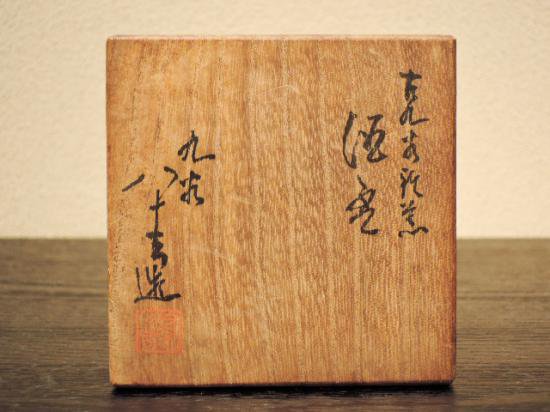 古九谷欽窯
酒盃
九谷
八十吉造